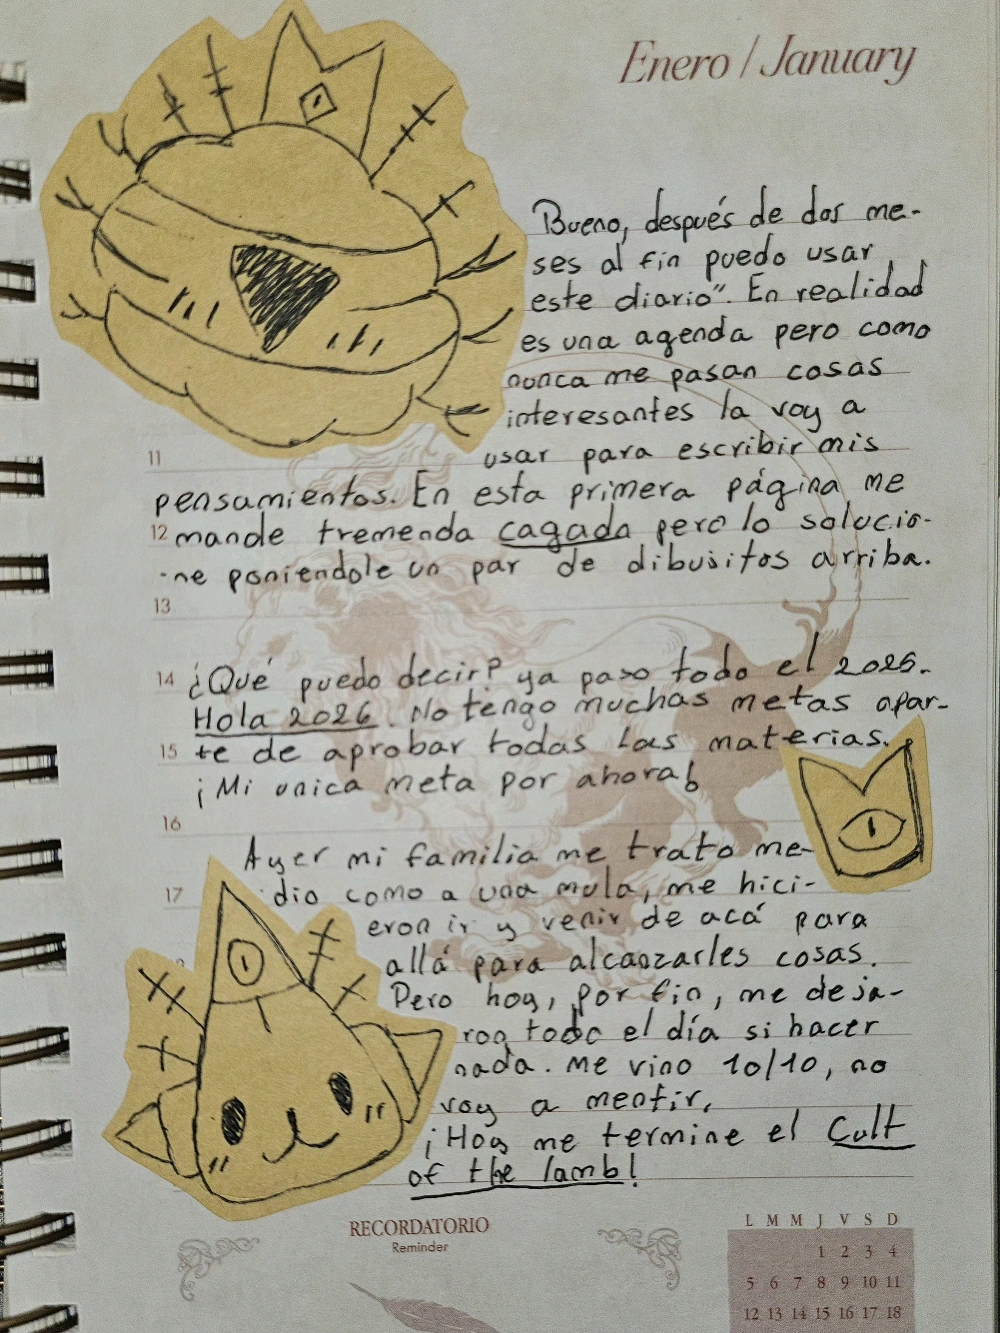 Enero / January
Bueno, después de dos me-
ses al fin puedo usar
este diario". En realidad
es una agenda pero como
nunca me pasan cosas
interesantes la voy a
11
usar para escribir mis
pensamientos. En esta primera página me
12 mande tremenda cagada pero lo solucio-
-ne poniendole un par de dibusitos arriba.
13
14 ¿Qué puedo decir? ya paso todo el 2025.
Hola 2026. No tengo muchas metas apar-
15 te de aprobar todas las materias.
¡Mi unica meta por ahora!
16
Ayer mi familia me trato me-
17 dio como a una mula, me hici-
eron ir y venir de acá para
allá para alcanzarles cosas.
Pero hoy, por fin, me deja-
ron todo el día si hacer
nada. Me vino 10/10, no
voy a mentir,
¡Hoy me termine el Cult
of the lamb!
RECORDATORIO
Reminder
L M M J V S D
1 2 3 4
5 6 7 8 9 10 11
12 13 14 15 16 17 18